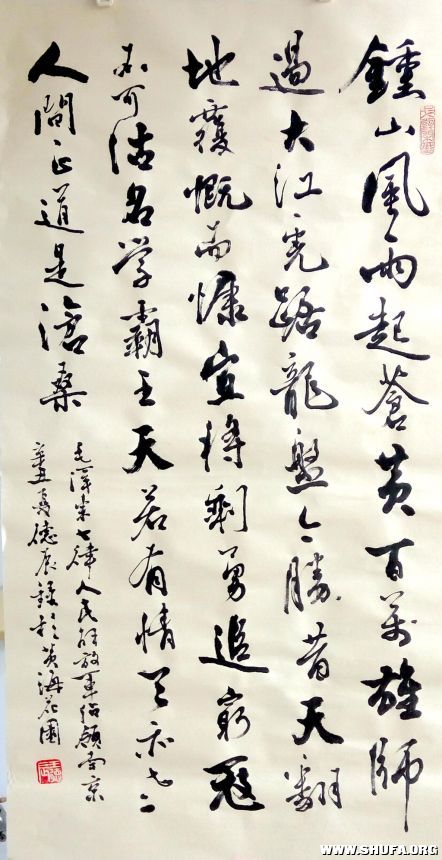 鍾山風雨起蒼黄百萬雄師
過大江虎踞龍盤今勝昔天翻
地覆慨而慷宜将剩勇追窮寇
不可沽名学霸王天若有情天亦老
人間正道是滄桑
毛澤東七律人民解放軍佔領南京
辛丑夏德辰録於黄海花園
WWW.SHUFA.ORG